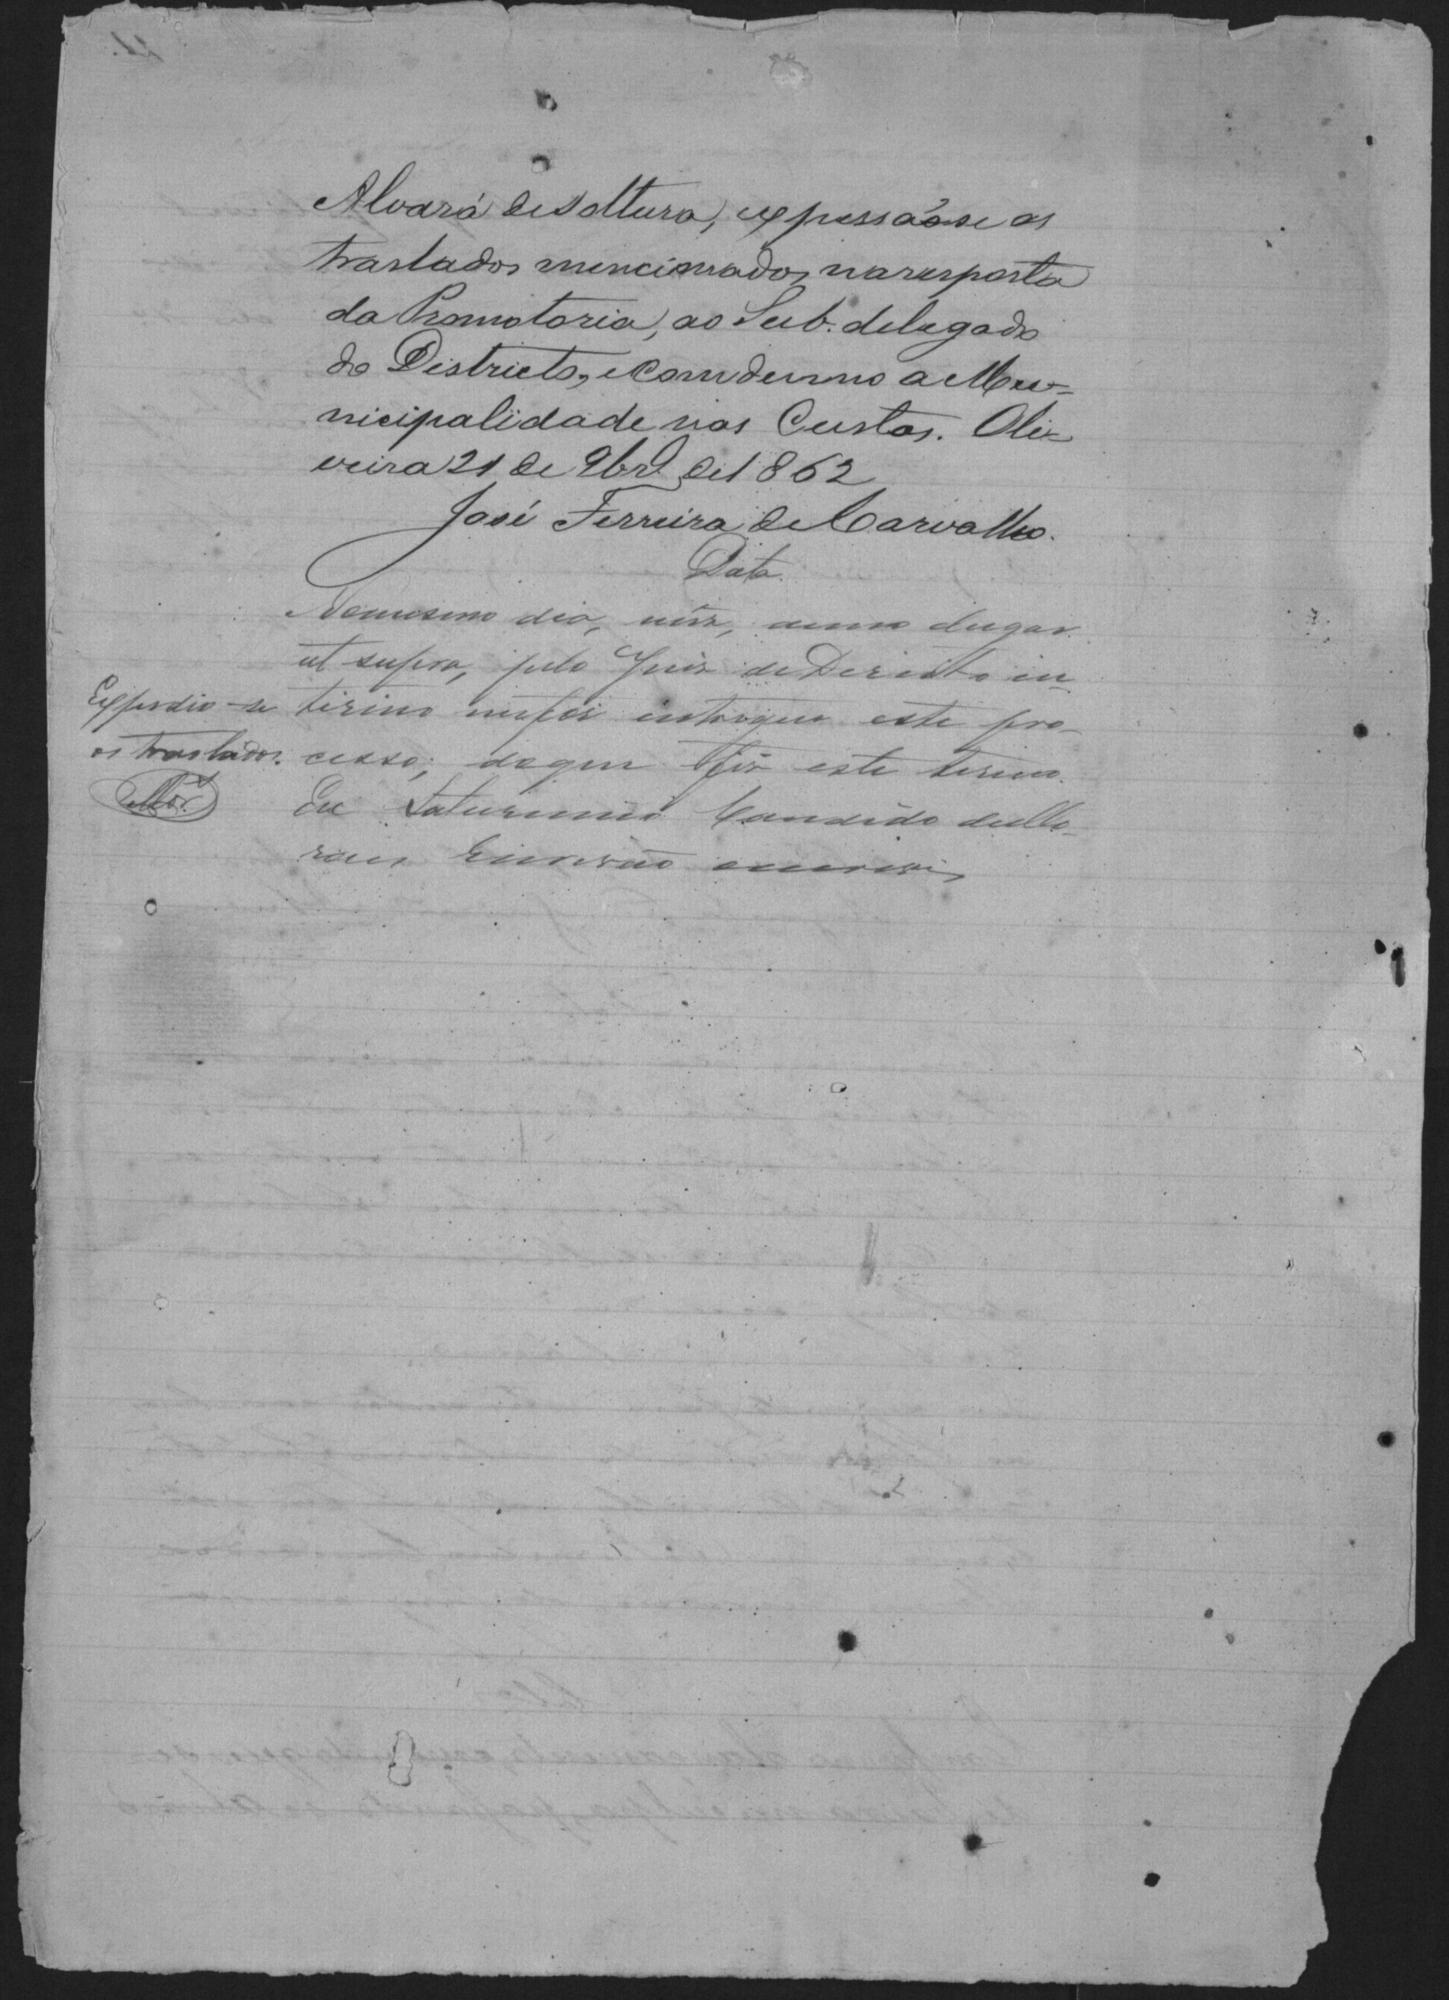 Alvará de soltura, expessão se os
traslados mencionados na resposta
da Promotoria, ao Sub-delegado
do Districto, e comdenno a Mu-
nicipalidade nas Custas. Oli-
veira 21 de 9br.o de 1862
José Ferreira de Carvalho.
Data.
No mesmo dia, mês, anno elugar
ut supra, pelo Juis de Dereito in-
terino me foi entregue este pro-
cesso; do que fiz este termo.
Eu Saturnino Candido de Mo-
raes Escrivão o escrevi,
Expedio-se
os traslados.